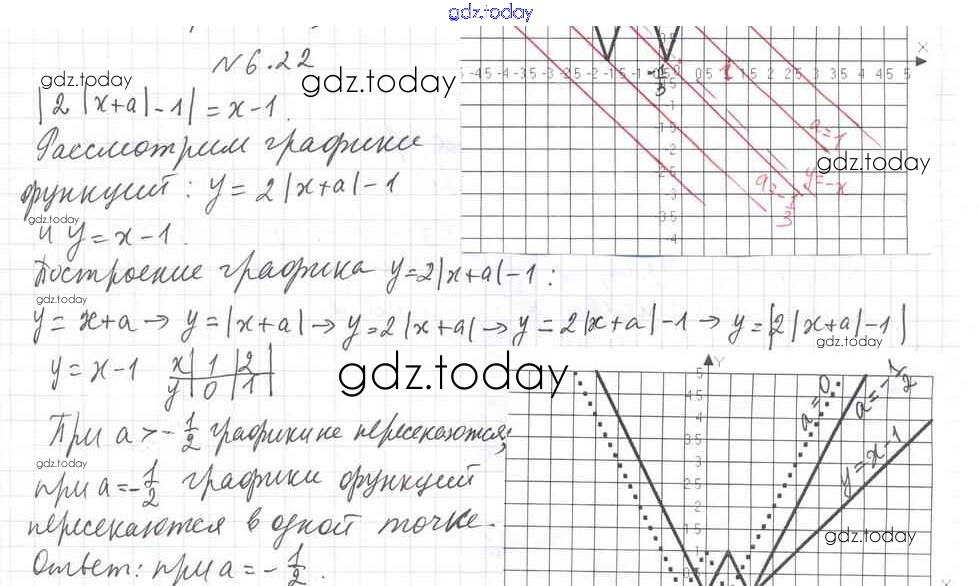 gdz.today
№ 6.22
gdz.today gdz.today
|2|x+a|-1| = x-1.
Рассмотрим графики
функций: y = 2|x+a|-1
gdz.today
и y = x-1.
Построение графика y=2|x+a|-1:
gdz.today
y = x+a → y = |x+a| → y=2|x+a| → y = 2|x+a|-1 → y = |2|x+a|-1|
gdz.today
y = x-1 x | 1 | 2 |
y | 0 | 1 |
gdz.today
При a > -1/2 графики не пересекаются;
gdz.today
при a = -1/2 графики функций
пересекаются в одной точке.
Ответ: при a = -1/2.
X
-1/3
a=1
gdz.today
y=-x
Y
a=0
a=-1/2
y=x-1
gdz.today